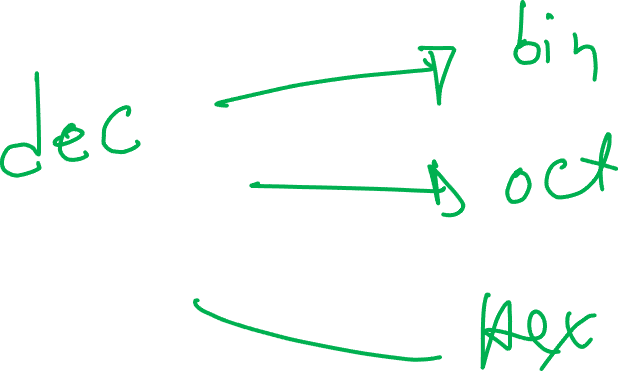 dec
bin
oct
Hex